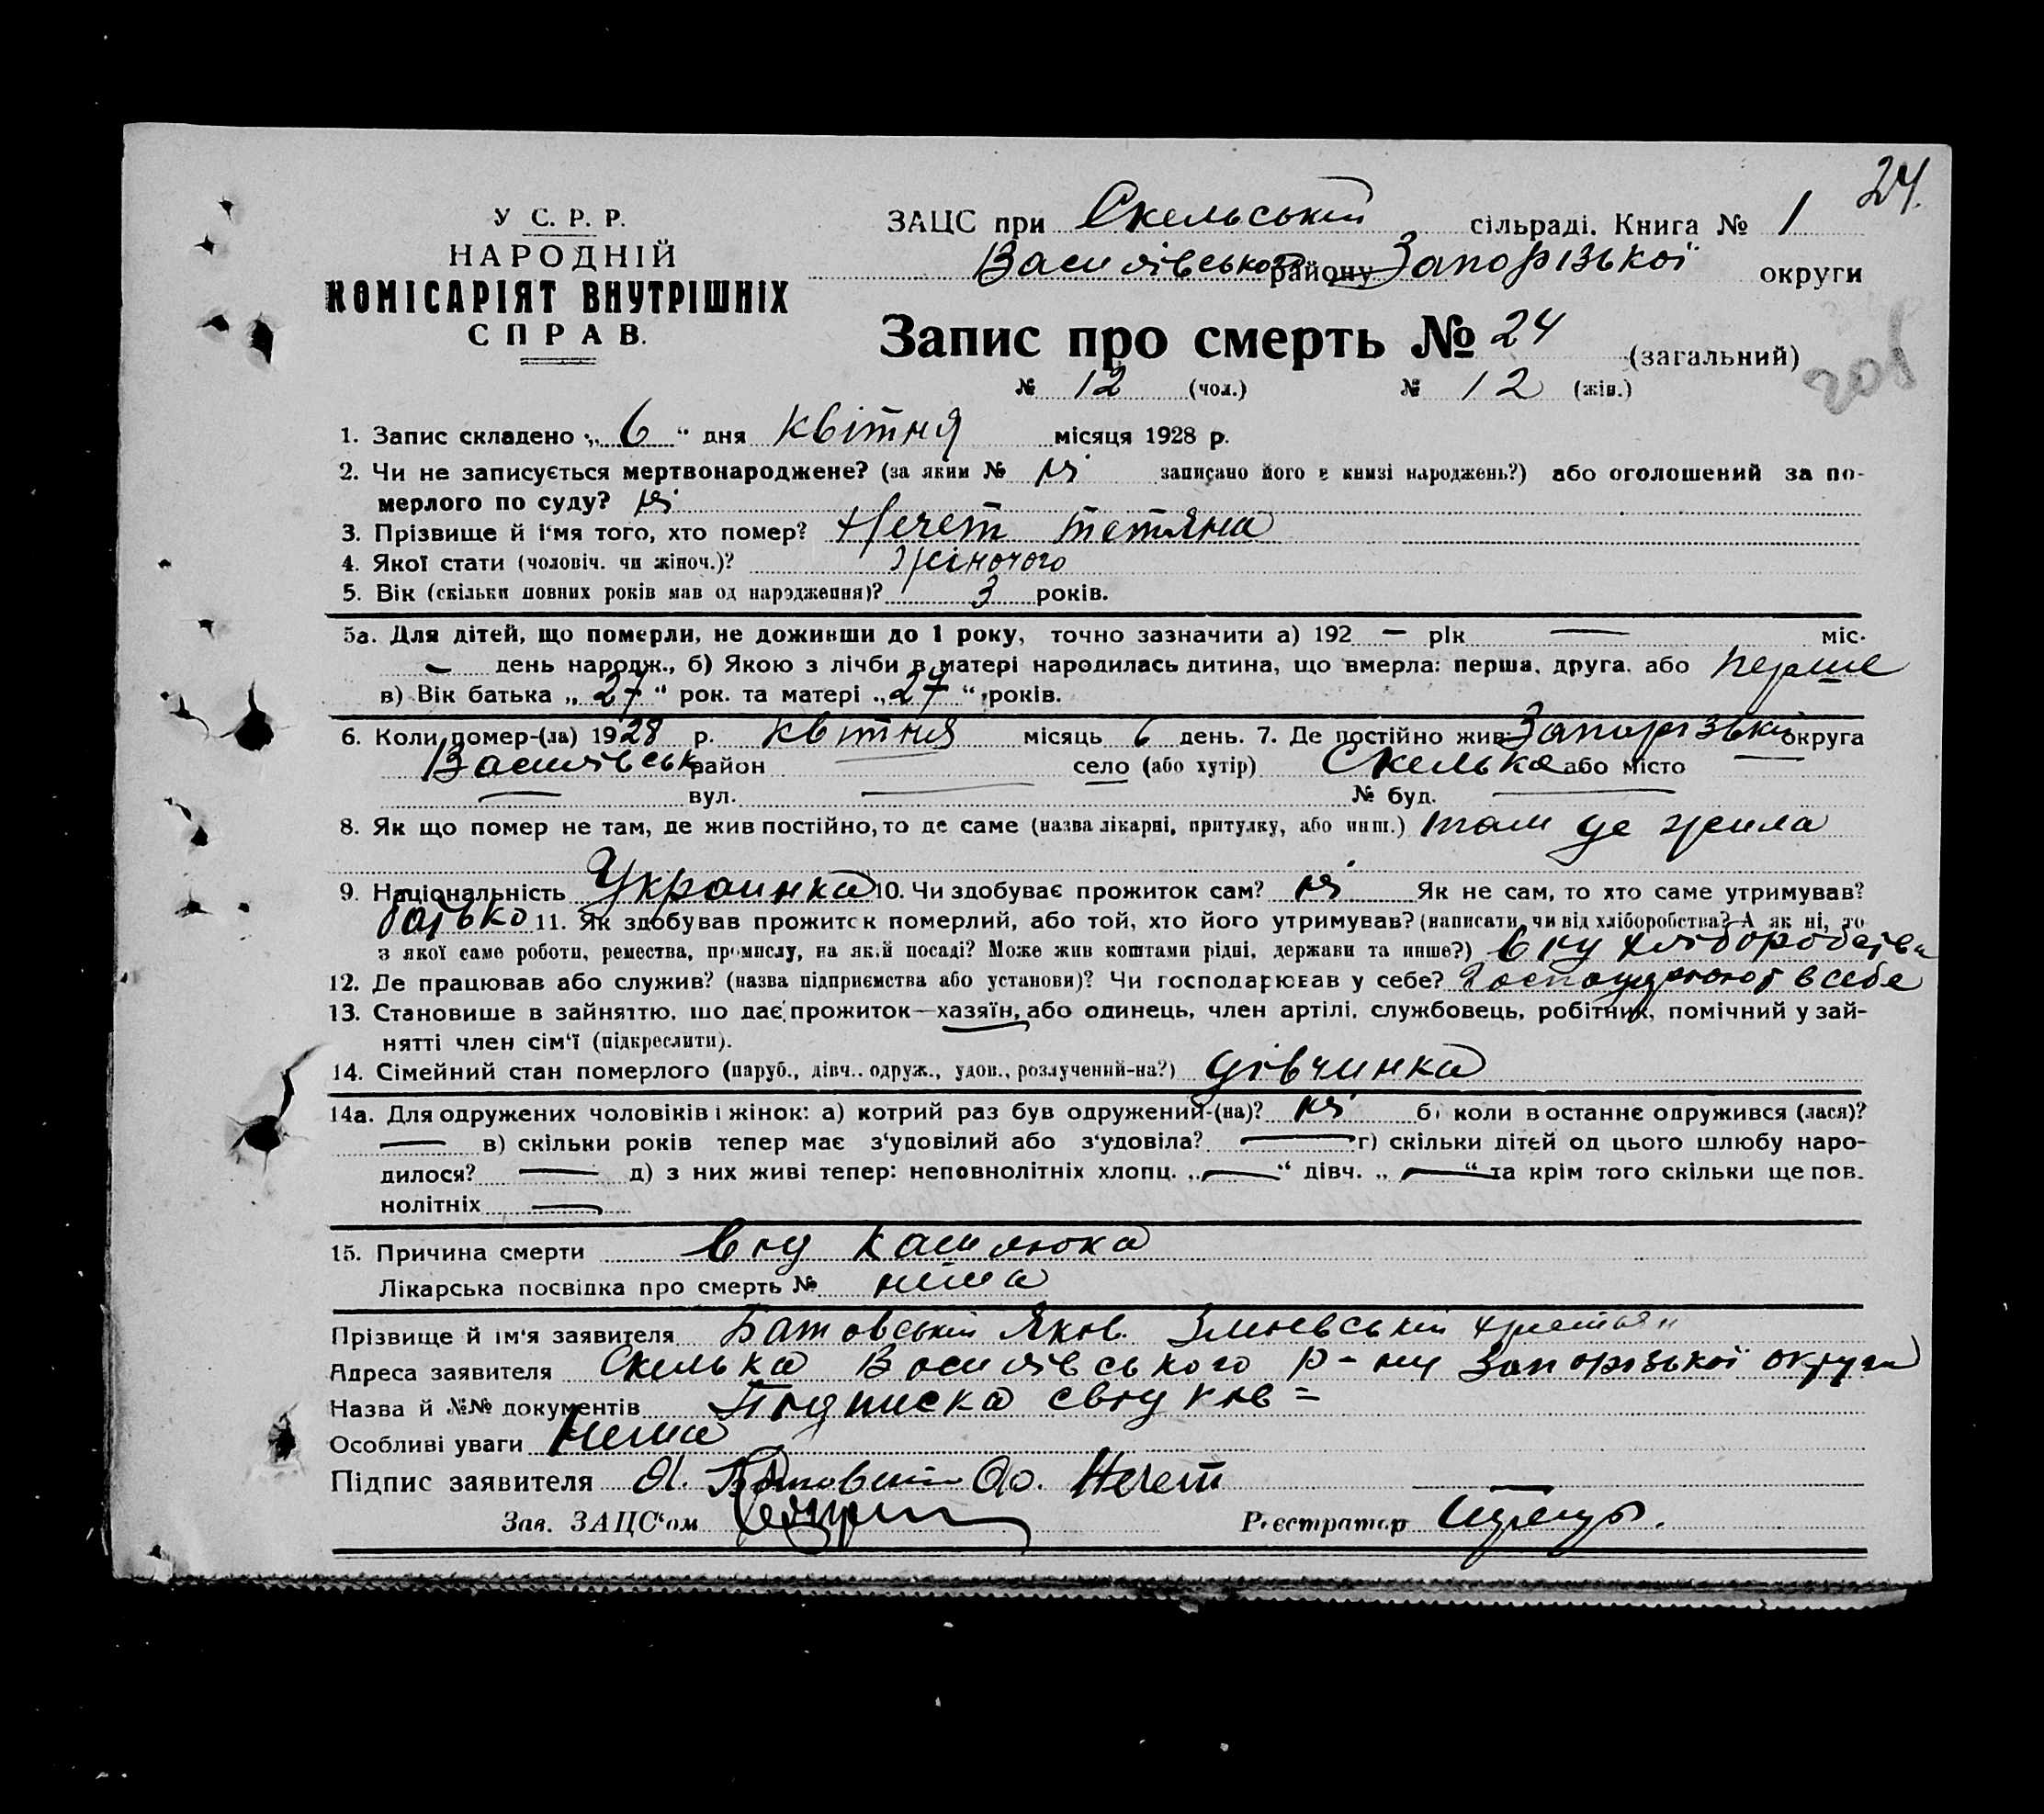 24.
У С. Р. Р.
НАРОДНІЙ
КОМІСАРІЯТ ВНУТРІШНІХ
СПРАВ.
ЗАЦС при Скельській сільраді. Книга № 1
Василівського району Запорізької округи
Запис про смерть № 24 (загальний)
№ 12 (чол.) № 12 (жін.)
1. Запис складено „ 6 “ дня квітня місяця 1928 р.
2. Чи не записується мертвонароджене? (за яким № ні записано його в книзі народжень?) або оголошений за по-
мерлого по суду? ні
3. Прізвище й і'мя того, хто помер? Нечет Тетяна
4. Якої стати (чоловіч. чи жіноч.)? жіночого
5. Вік (скільки повних років мав од народження)? 3 років.
5а. Для дітей, що померли, не доживши до 1 року, точно зазначити а) 192 — рік — міс.
— день народж., б) Якою з лічби в матері народилась дитина, що вмерла: перша, друга, або перше
в) Вік батька „ 27 “ рок. та матері „ 27 “ років.
6. Коли помер-(ла) 1928 р. квітня місяць 6 день. 7. Де постійно жив Запорізькій округа
Василівськ район — село (або хутір) Скелька або місто —
— вул. — № буд. —
8. Як що помер не там, де жив постійно, то де саме (назва лікарні, притулку, або инш.) там де жила
9. Національність Украинка 10. Чи здобуває прожиток сам? ні Як не сам, то хто саме утримував?
батько 11. Як здобував прожиток померлий, або той, хто його утримував? (написати, чи від хліборобства? А як ні, то
з якої саме роботи, ремества, промислу, на якій посаді? Може жив коштами рідні, держави та инше?) від хліборобства
12. Де працював або служив? (назва підприємства або установи)? Чи господарював у себе? господарюют в себе
13. Становише в зайняттю, що дає прожиток—хазяїн, або одинець, член артілі, службовець, робітник, помічний у зай-
нятті член сім'ї (підкреслити).
14. Сімейний стан померлого (паруб., дівч.. одруж., удов., розлучений-на?) дівчинка
14а. Для одружених чоловіків і жінок: а) котрий раз був одружений-(на)? ні б) коли в останнє одружився (лася)?
— в) скільки років тепер має з'удовілий або з'удовіла? — г) скільки дітей од цього шлюбу наро-
дилося? — д) з них живі тепер: неповнолітніх хлопц. „ — “ дівч. „ — “ та крім того скільки ще пов.
нолітніх —
15. Причина смерти від кашлюка
Лікарська посвідка про смерть № нима
Прізвище й ім'я заявителя Батовській Яков.
Адреса заявителя Скелька Василівського р-ну Запорізької округи
Назва й №№ документів Підписка свідків =
Особливі уваги Нима
Підпис заявителя Я. Батовський Нечет
Зав. ЗАЦС'ом
Реєстратор